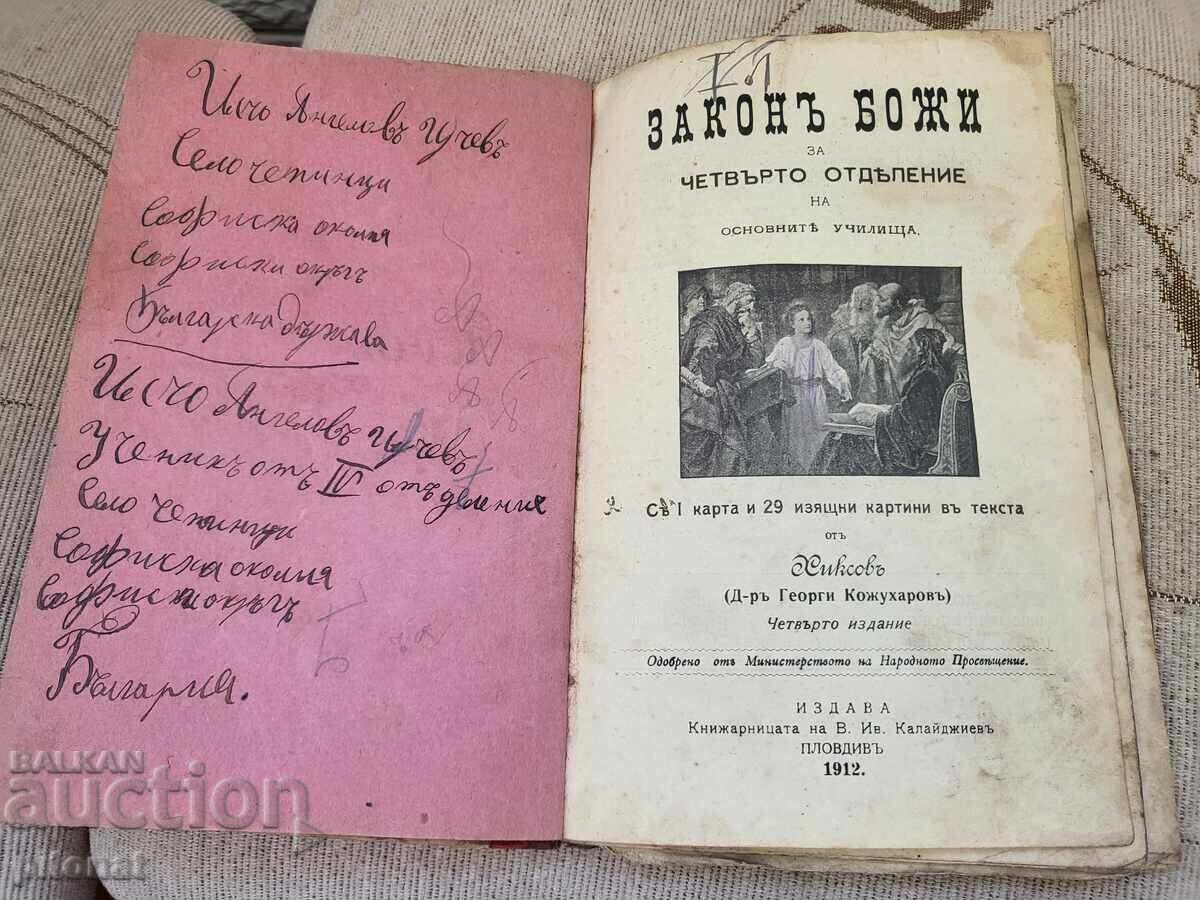 Исчо Ангеловъ Гучевъ
Село четинци
Софиска околия
Софиски окръгъ
Българска държава
Исчо Ангеловъ Гучевъ
Ученикъ отъ IV отъделение
Село Четинци
Софиска околия
Софиски окръгъ
България.
ЗАКОНЪ БОЖИ
ЗА
ЧЕТВЪРТО ОТДѢЛЕНИЕ
НА
ОСНОВНИТѢ УЧИЛИЩА.
Съ 1 карта и 29 изящни картини въ текста
отъ
Хиксовъ
(Д-ръ Георги Кожухаровъ)
Четвърто издание
Одобрено отъ Министерството на Народното Просвѣщение.
ИЗДАВА
Книжарницата на В. Ив. Калайджиевъ
ПЛОВДИВЪ
1912.
BALKAN
auction
pilonal